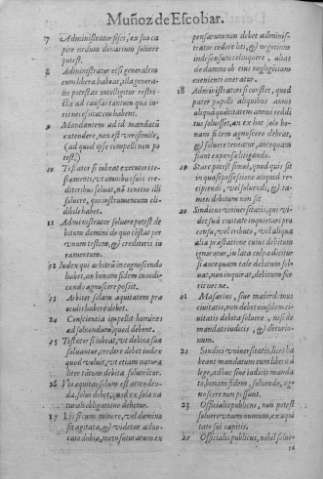 Muñoz de Escobar.
7 Administrator fisci, ex sua ca
pite creditum
potest.
8 Administrator etsi generalem
cum libera habeat, illa genera-
lis potestas intelligitur restri-
cta ad causas tantum que in-
habent.
9 Mandatum ad id mandatũ
extendere, non est verisimile,
(ad quod ipse compelli non po
test.)
10 Testator si iubeat executori te-
stamenti, vt omnibus suis cre-
ditoribus soluat, nõ tenetur illi
soluere, qui instrumentum eli-
habet.
11 Administrator soluere potest de
bitum domini de quo cõstat per
vnum testem, & creditoris iu
ramentum.
12 Iudex qui arbitriũ in cognoscendo
habet, an bonam fidem
cendo agnoscere possit.
13 Arbiter solam equitatem præ
oculis habere debet.
14 Conscientia compellit homines
ad soluendum quod debent.
15 Testator si iubeat, vt debita sua
soluantur, credere debet iudex
quod voluit, vt etiam natura-
liter tantum debita soluantur.
16 equitas solum est attenden-
da, solus debet, quod ex sola na
turali obligatione debetur.
17 minuere, vel damna
sit agitata, & videtur aduo-
catus dubia, metu futurarum ex
pensarum non debet administra-
tor cedere liti, & negotium
indefensum relinquere, alias
de damno ob eius negligentiam
eueniente tenetur.
18 Administratori si constet, quod
pater pupilli aliquibus annis
aliqua quantitatem annui reddi
tus soluisset, an ex hoc solo bo-
nam fidem agnoscere debeat,
& soluere teneatur, antequam
fiant expensæ litigando.
19 Stare potest simul, quod quis sit
in quasi possessione aliquid re-
cipiendi, vel soluendi, & ta-
men debitum non sit.
20 Sindicus vniuersitatis, qui vi-
det suã ciuitatem inquietari pro
censu, vel tributo, vel aliqua
alia præstatione cuius debitum
ignoratur, in lata culpa
si antequam tale debitum sol-
uat, non inquirat, debitum sit
necne.
21 Maiorins, siue maiordomus
ciuitatis, non debet quidem ci-
uitatis debita soluere, nisi de
mandato iudicis, & decurio-
num.
22 Sindici vniuersitatis, licet ha
beant mandatum cum libera à
lege, adhuc sine iudicis manda
to, bonam fidem, soluendo, ag-
noscere non possunt.
23 Officialis publicus, non potest
soluere vt nummum, ex capi-
tali sui capitis.
24 Officialis publicus, nihil solue-
re